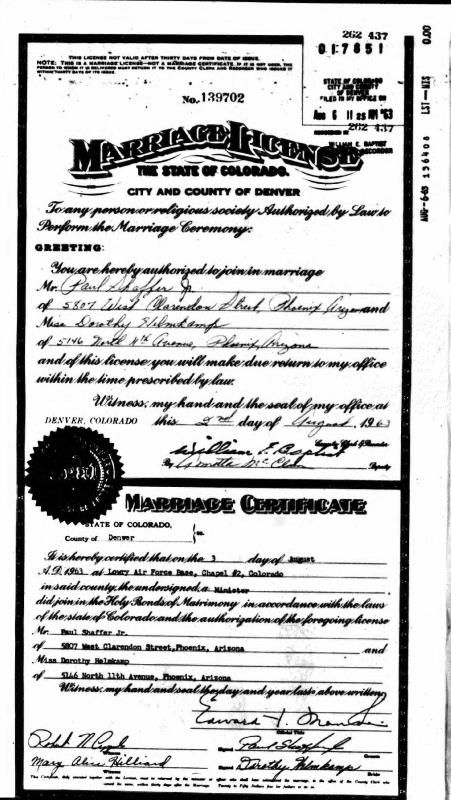 262 437
017851
THIS LICENSE NOT VALID AFTER THIRTY DAYS FROM DATE OF ISSUE.
NOTE: THIS IS A MARRIAGE LICENSE—NOT A MARRIAGE CERTIFICATE. IF IT IS NOT USED, THE
PERSON TO WHOM IT IS DELIVERED MUST RETURN IT TO THE COUNTY CLERK AND RECORDER WHO ISSUED IT
WITHIN THIRTY DAYS OF ITS ISSUE.
STATE OF COLORADO
CITY AND COUNTY
OF DENVER
FILED IN MY OFFICE ON
AUG 6 11 25 AM '63
RECORDED IN
262 437
WILLIAM E. BAPTIST
RECORDER
0.00
LST—MIS
AUG-6-63
No. 139702
MARRIAGE LICENSE
THE STATE OF COLORADO.
CITY AND COUNTY OF DENVER
To any person or religious society Authorized by Law to
Perform the Marriage Ceremony:
GREETING:
You are hereby authorized to join in marriage
Mr. Paul Shaffer Jr.
of 5807 West Clarendon Street, Phoenix Arizona and
Miss Dorothy Helmkamp
of 5146 North 11th Avenue, Phoenix, Arizona
and of this license, you will make due return to my office
within the time prescribed by law.
Witness, my hand and the seal of my office at
DENVER, COLORADO this 2nd day of August, 1963
William E. Baptist
County Clerk & Recorder
By Deputy
MARRIAGE CERTIFICATE
STATE OF COLORADO,
County of Denver ss.
It is hereby certified that on the 3 day of August
A.D. 1963 at Lowry Air Force Base, Chapel #2, Colorado
in said county, the undersigned, a Minister
did join in the Holy Bonds of Matrimony in accordance with the laws
of the state of Colorado and the authorization of the foregoing license
Mr. Paul Shaffer Jr.
of 5807 West Clarendon Street, Phoenix, Arizona and
Miss Dorothy Helmkamp
of 5146 North 11th Avenue, Phoenix, Arizona
Witness, my hand and seal the day and year last above written
Edward J.
Official Title
Signed Paul Shaffer Jr.
Witness Groom
Mary Alice Hilliard Signed Dorothy Helmkamp
Witness Bride